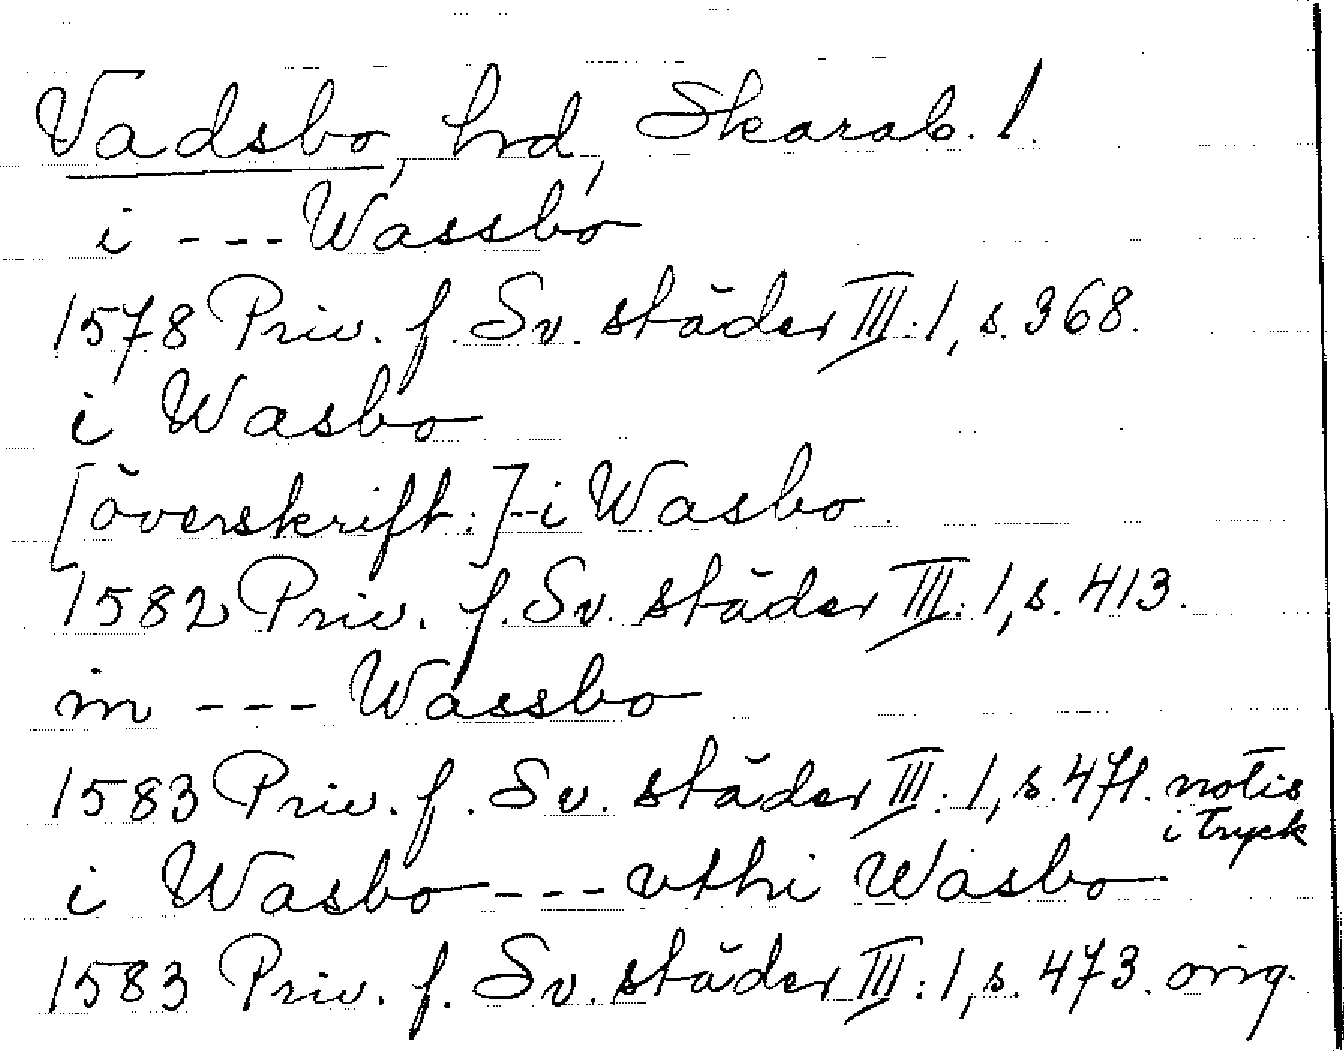 Vadsbo, hd, Skarab. l.
i --- Wassbo
1578 Priv. f. Sv. städer III:1, s. 368.
i Wasbo
[överskrift:] - i Wasbo
1582 Priv. f. Sv. städer III:1, s. 413.
in --- Wassbo
1583 Priv. f. Sv. städer III:1, s. 471. notis
i tryck
i Wasbo --- vthi Wasbo
1583 Priv. f. Sv. städer III:1, s. 473. orig.